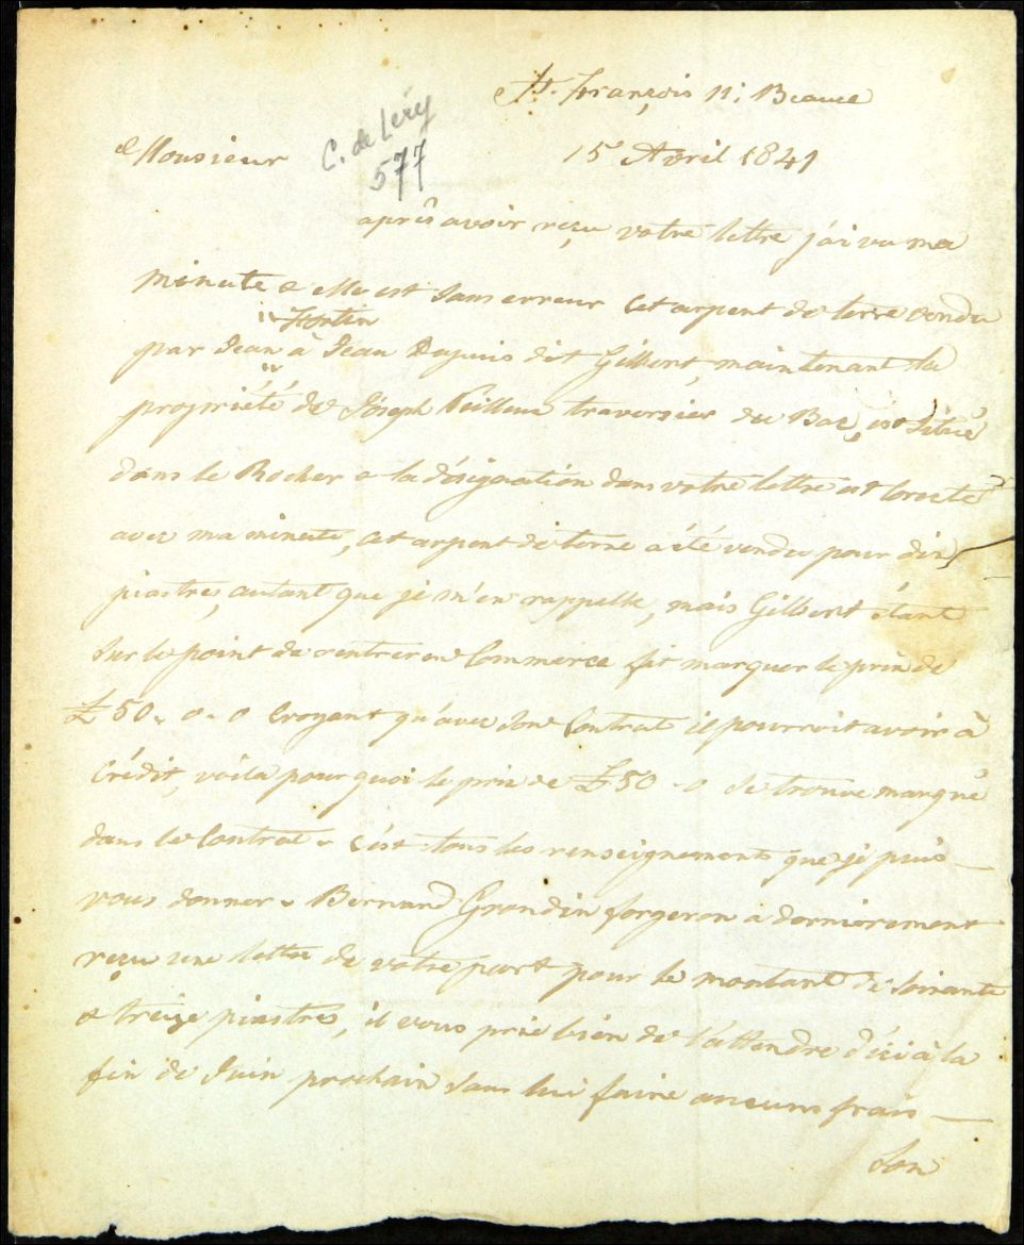 St. François N: Beauce
Monsieur
C. de Léry
577
15 Avril 1841
après avoir reçu votre lettre j'ai vu ma
minute & elle est sans erreur Cet arpent de terre vendu
Fortin
par Jean à Jean Dupuis dit Gilbert, maintenant la
propriété de Joseph Veilleux traversier du Bac, est situé
dans le Rocher & la désignation dans votre lettre est correcte
avec ma minute, cet arpent de terre a été vendu pour dix
piastres, autant que je m'en rappelle, mais Gilbert étant
sur le point de rentrer en Commerce fit marquer le prix de
£50 " 0 " 0 Croyant qu'avec son Contrat il pourroit avoir à
Crédit, voila pour quoi le prix de £50 " 0 se trouve marqué
dans le Contrat " c'est tous les renseignements que je puis
vous donner " Bernard Grondin forgeron a dernierement
reçu une lettre de votre part pour le montant de soixante
& treize piastres, il vous prie bien de l'attendre d'ici à la
fin de Juin prochain sans lui faire aucuns frais
Son